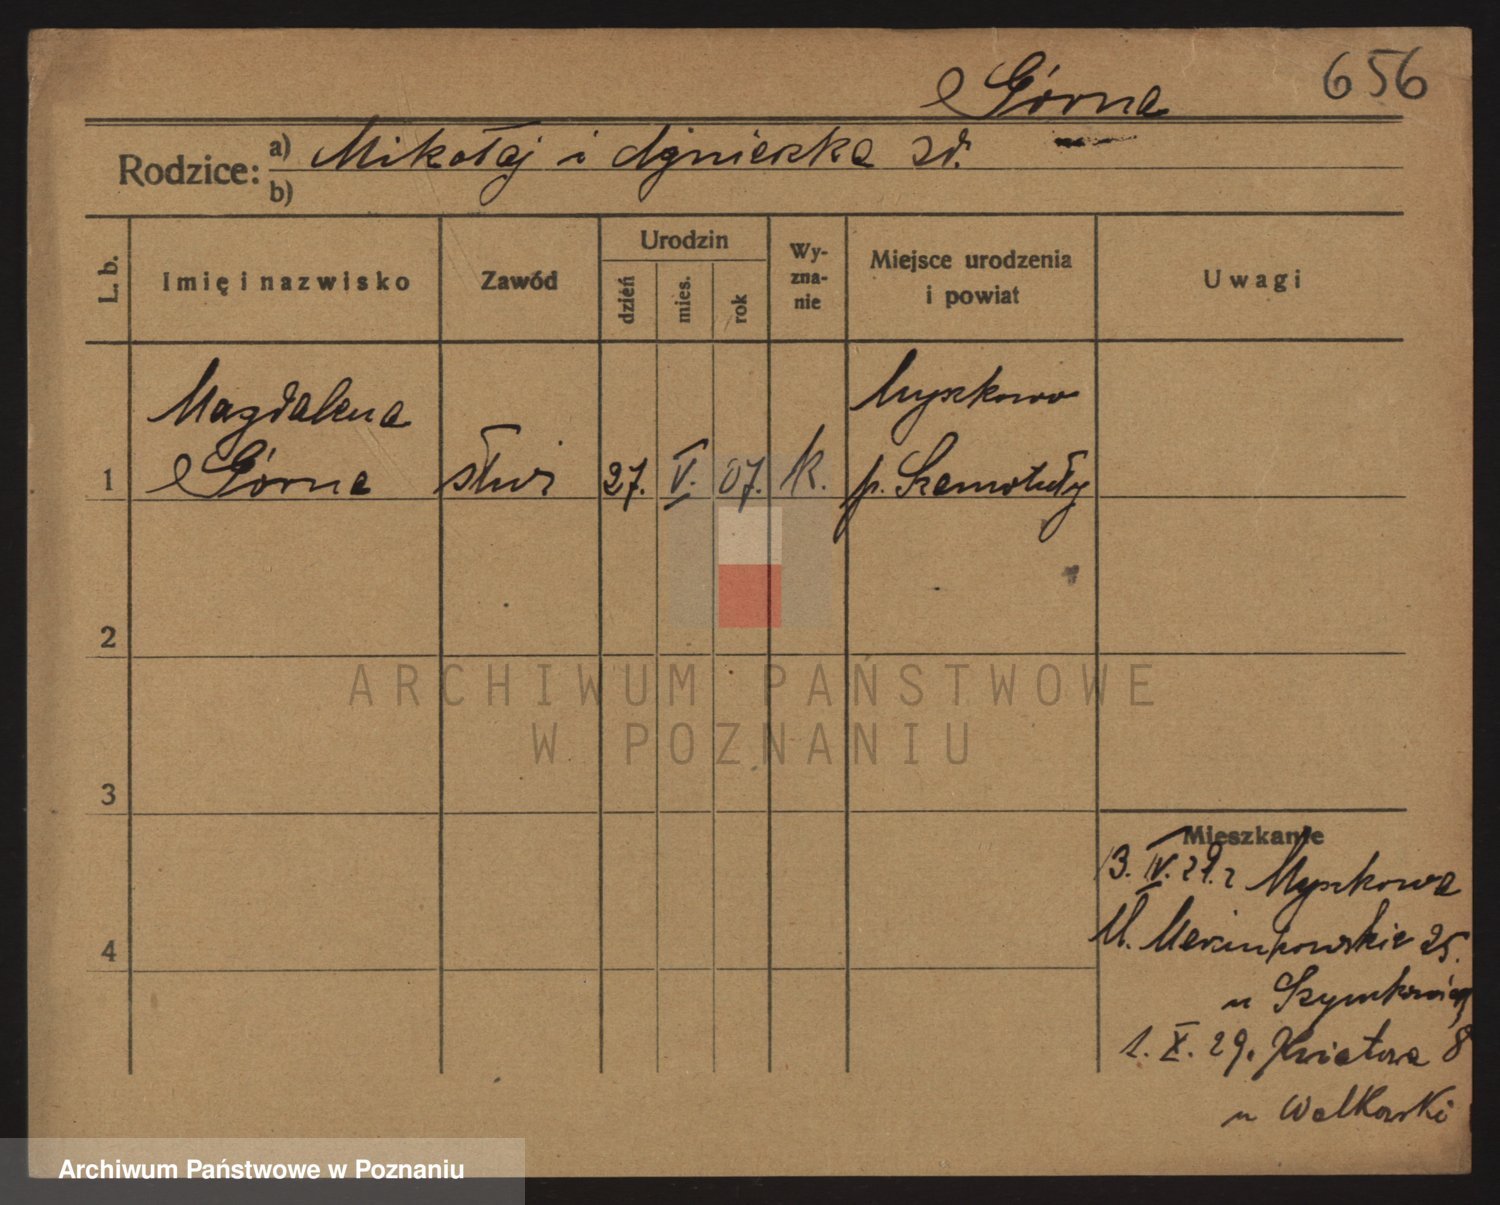 Górna 656
Rodzice: a) Mikołaj i Agnieszka
b)
L. b. Imię i nazwisko Zawód Urodzin dzień mies. rok Wy-zna-nie Miejsce urodzenia i powiat Uwagi
Magdalena Myszkowo
1 Górna służ 27. V. 07. k. p. Szamotuły
2
ARCHIWUM PAŃSTWOWE
W POZNANIU
3
Mieszkanie
13. IV. 29. z Myszkowa
4
M. 25.
u
1. X. 29. Kwiatowa 8
u Walkowski
Archiwum Państwowe w Poznaniu